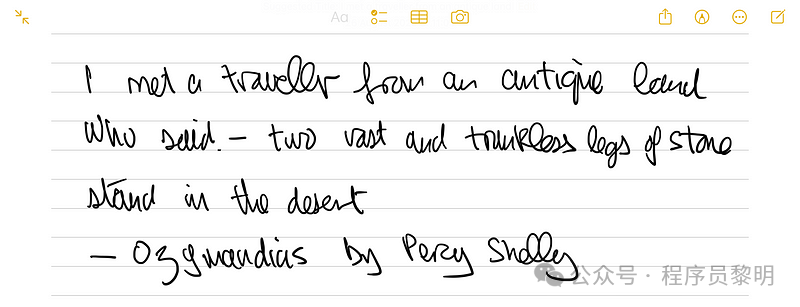 Aa
I met a traveller from an antique land
Who said – two vast and trunkless legs of stone
stand in the desert
– Ozymandias by Percy Shelly
公众号 · 程序员黎明